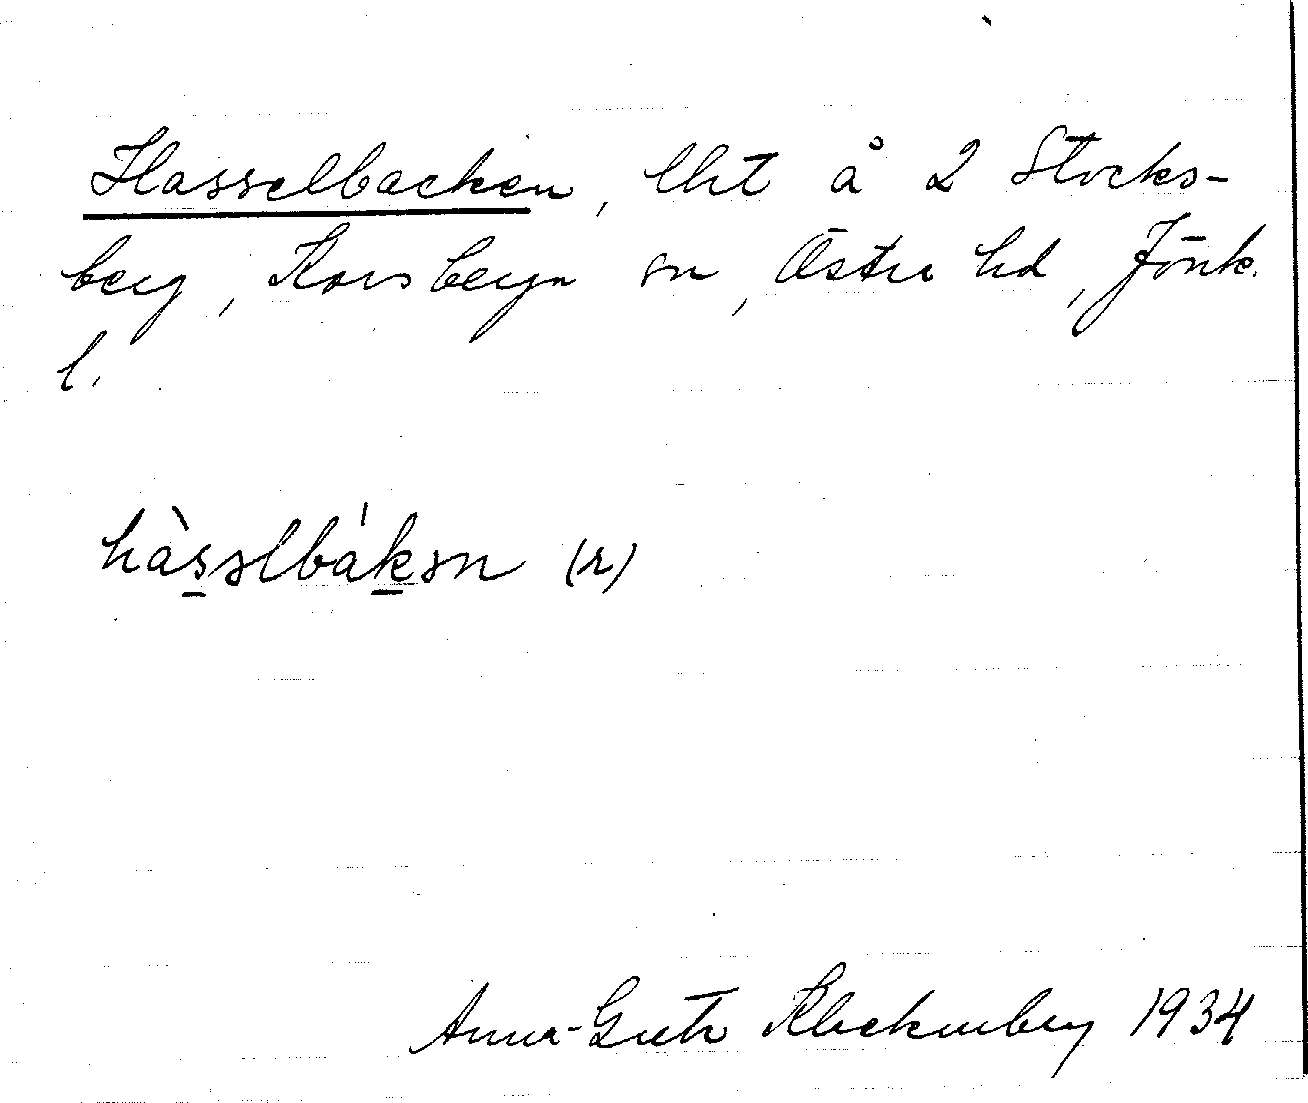 Hasselbacken, lht å 2 Stocks-
berg, Korsberga sn, Östra hd, Jönk.
l.
hàsəlbákən (r)
Anna-Greta Klockenberg 1934